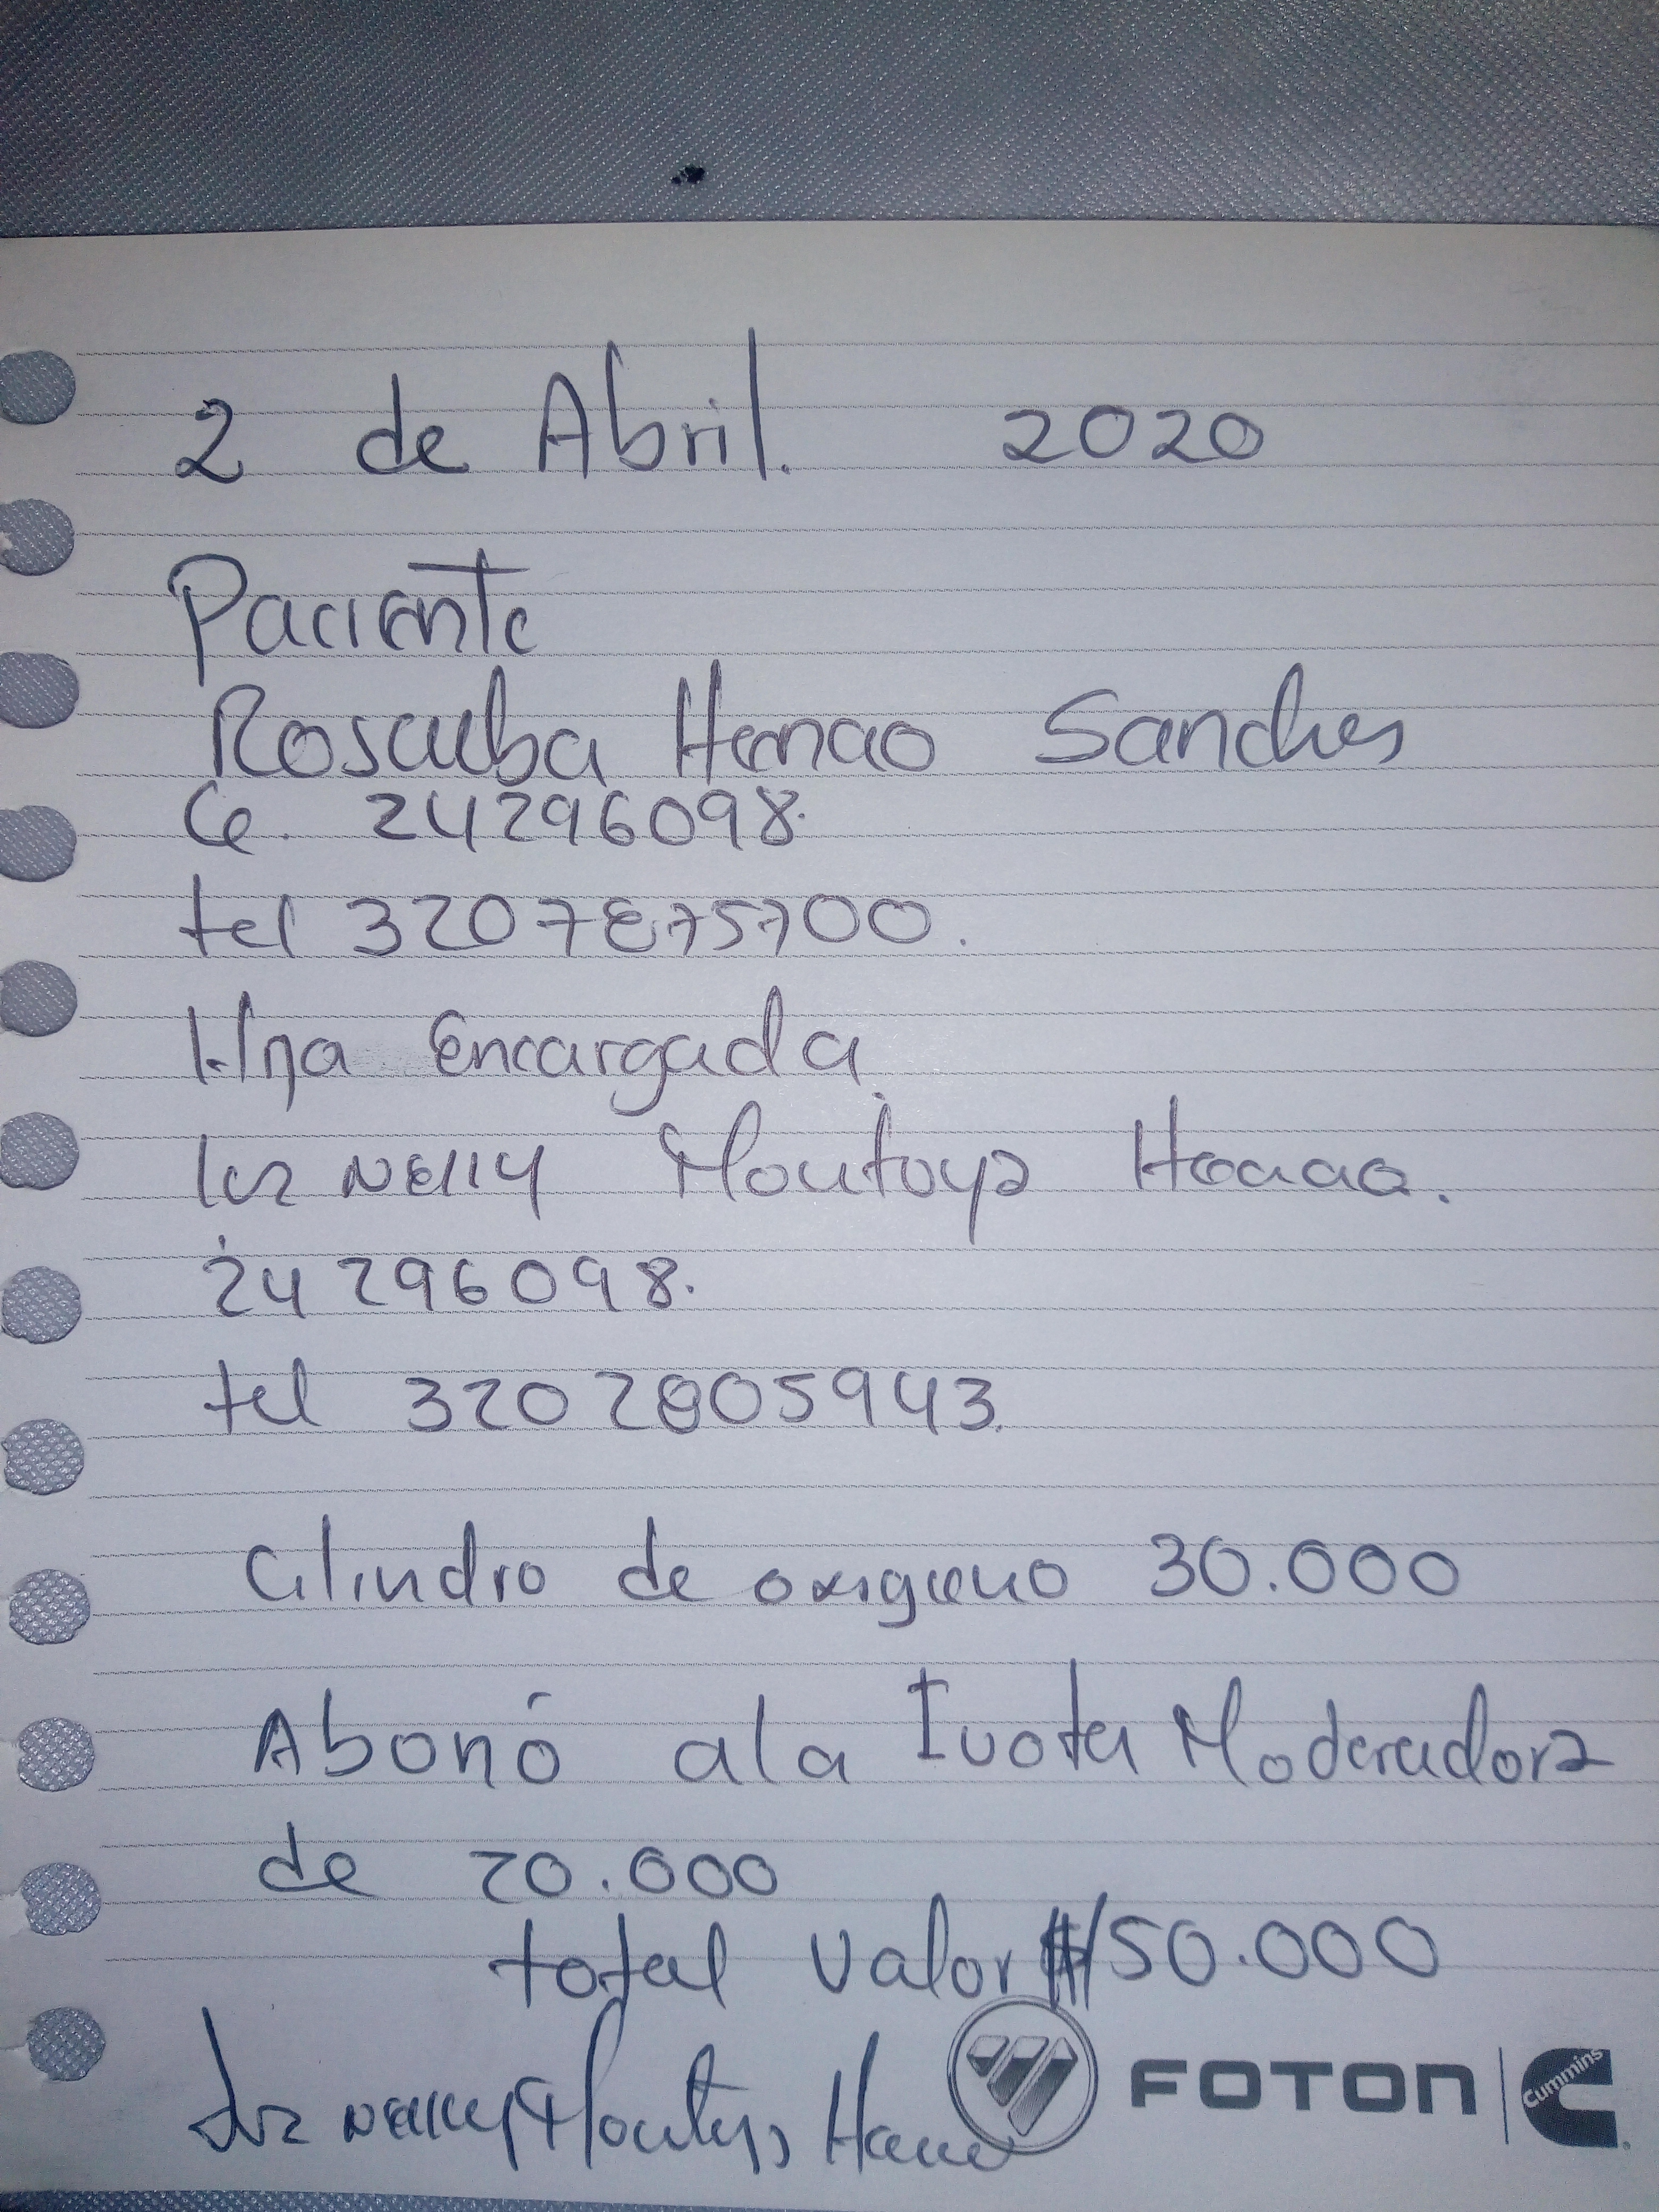 2 de Abril. 2020
Paciente
Rosalba Henao Sanches
CC. 24296098.
tel 3207875700.
Hna Encargada
luz NEllY Montoya Henao.
24296098.
tel 3202805943.
Cilindro de oxigeno 30.000
Abonó ala Cuota Moderadora
de 20.000
total valor $ 50.000
Luz NEllY Montoya Henao
FOTON
Cummins